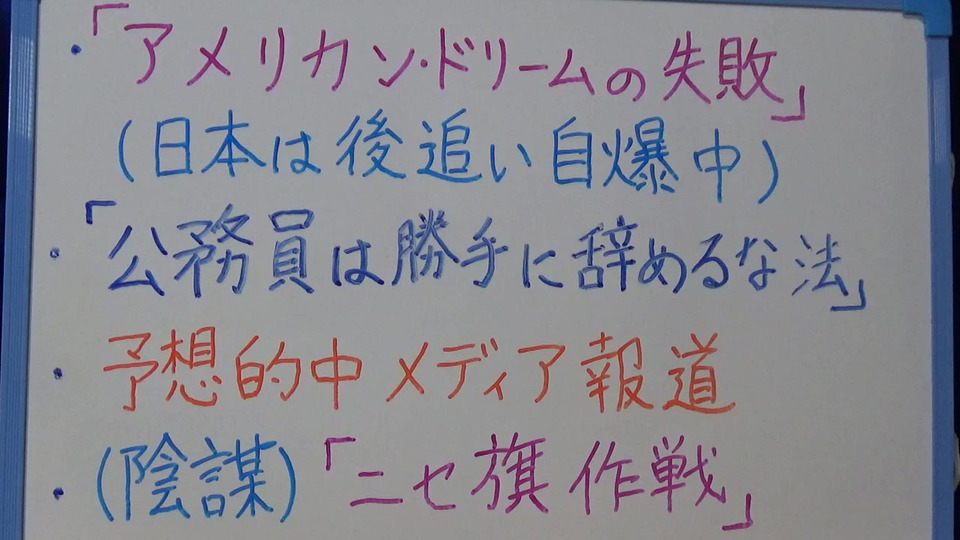 ・「アメリカン・ドリームの失敗」
(日本は後追い自爆中)
・「公務員は勝手に辞めるな法」
・予想的中メディア報道
・(陰謀)「ニセ旗作戦」